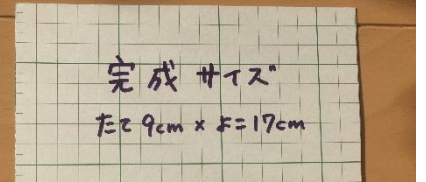 完成サイズ
たて9cm×よこ17cm